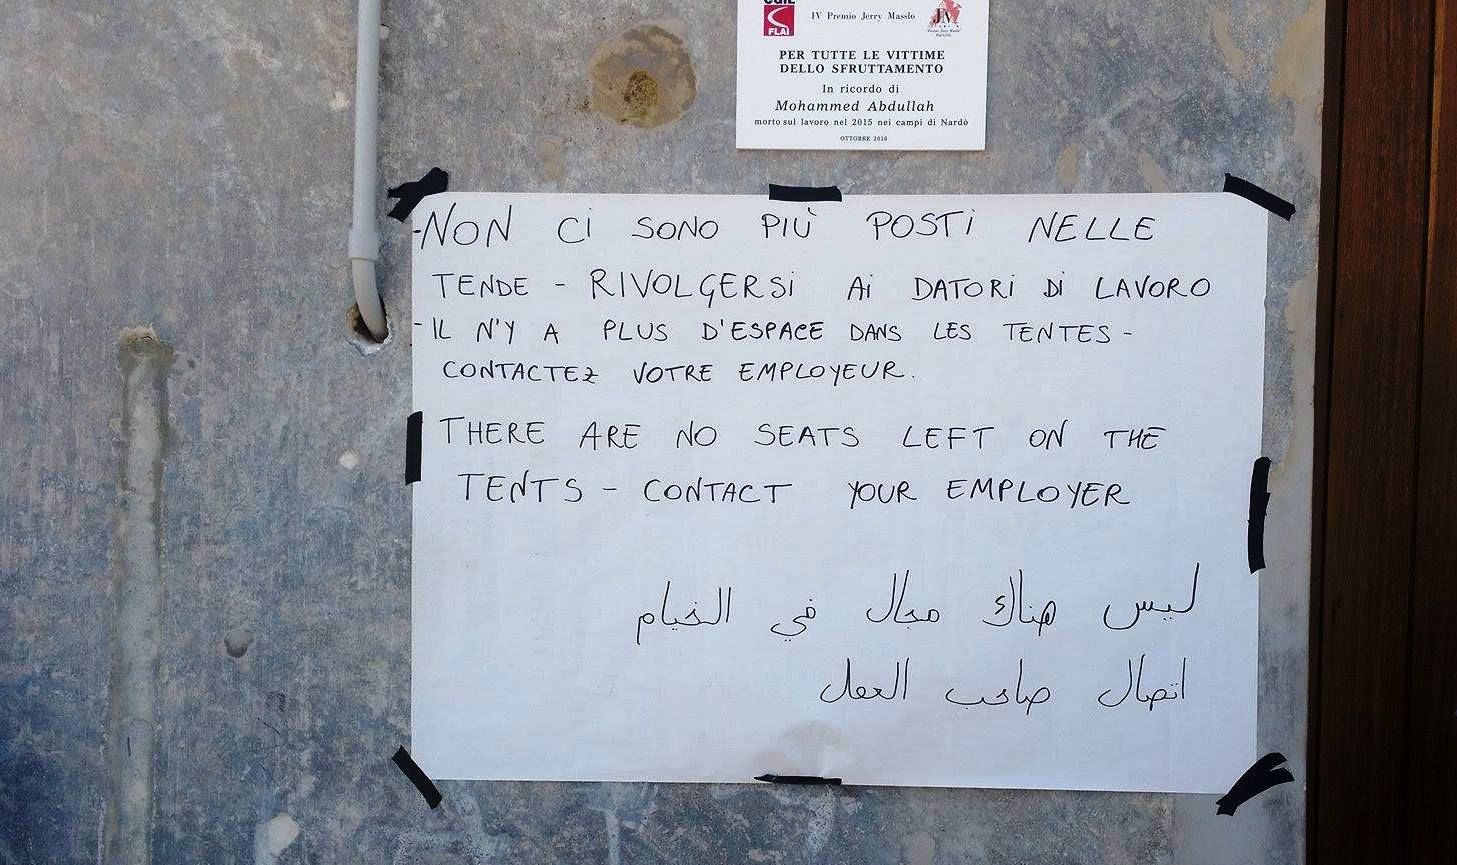 CGIL
FLAI
IV Premio Jerry Masslo
PER TUTTE LE VITTIME
DELLO SFRUTTAMENTO
In ricordo di
Mohammed Abdullah
morto sul lavoro nel 2015 nei campi di Nardò
OTTOBRE 2016
-NON CI SONO PIÙ POSTI NELLE
TENDE - RIVOLGERSI AI DATORI DI LAVORO
-IL N'Y A PLUS D'ESPACE DANS LES TENTES-
CONTACTEZ VOTRE EMPLOYEUR.
THERE ARE NO SEATS LEFT ON THE
TENTS - CONTACT YOUR EMPLOYER
ليس هناك مجال في الخيام
اتصال صاحب العمل